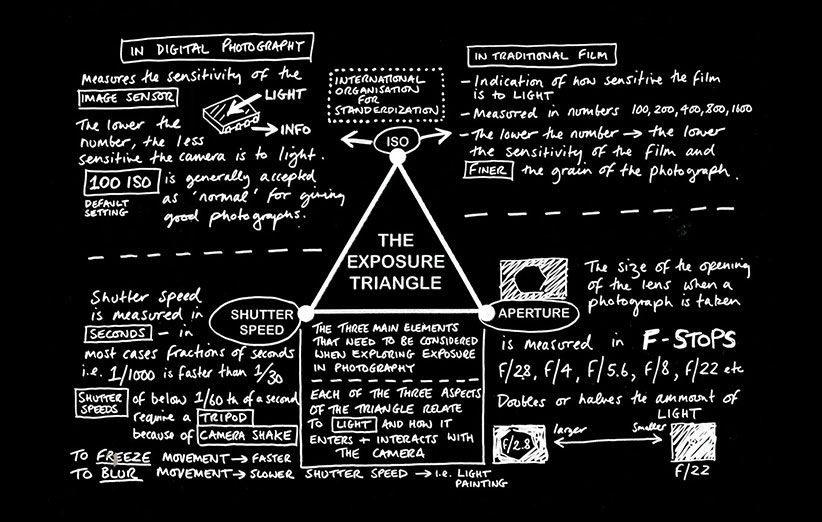 IN DIGITAL PHOTOGRAPHY
Measures the sensitivity of the
IMAGE SENSOR
LIGHT
INFO
The lower the
number, the less
sensitive the camera is to light.
100 ISO is generally accepted
DEFAULT
SETTING
as 'normal' for giving
good photographs.
INTERNATIONAL
ORGANISATION
FOR
STANDERDIZATION
ISO
IN TRADITIONAL FILM
- Indication of how sensitive the film
is to LIGHT
- Measured in numbers 100, 200, 400, 800, 1600
- The lower the number → the lower
the sensitivity of the film and
FINER the grain of the photograph.
THE
EXPOSURE
TRIANGLE
SHUTTER
SPEED
APERTURE
Shutter speed
is measured in
SECONDS - in
most cases fractions of seconds
i.e. 1/1000 is faster than 1/30
SHUTTER
SPEEDS
of below 1/60th of a second
require a TRIPOD
because of CAMERA SHAKE
TO FREEZE MOVEMENT → FASTER
TO BLUR MOVEMENT → SLOWER SHUTTER SPEED → i.e. LIGHT
PAINTING
THE THREE MAIN ELEMENTS
THAT NEED TO BE CONSIDERED
WHEN EXPLORING EXPOSURE
IN PHOTOGRAPHY
EACH OF THE THREE ASPECTS
OF THE TRIANGLE RELATE
TO LIGHT AND HOW IT
ENTERS + INTERACTS WITH
THE CAMERA
The size of the opening
of the lens when a
photograph is taken
is measured in F-STOPS
f/2.8, f/4, f/5.6, f/8, f/22 etc
Doubles or halves the ammount of
LIGHT
larger
smaller
f/2.8
f/22